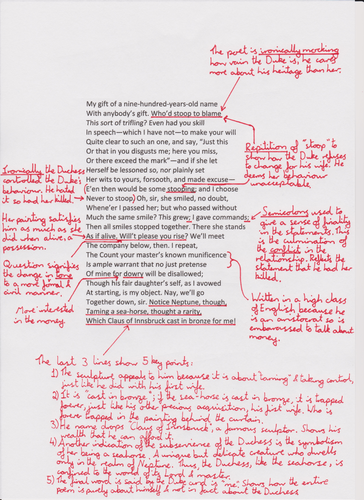 The poet is ironically mocking
how vain the Duke is, he cares
more about his heritage than her.
My gift of a nine-hundred-years-old name
With anybody's gift. Who'd stoop to blame
This sort of trifling? Even had you skill
In speech—which I have not—to make your will
Quite clear to such an one, and say, "Just this
Or that in you disgusts me; here you miss,
Or there exceed the mark"—and if she let
Herself be lessoned so, nor plainly set
Her wits to yours, forsooth, and made excuse—
E'en then would be some stooping; and I choose
Never to stoop. Oh, sir, she smiled, no doubt,
Whene'er I passed her; but who passed without
Much the same smile? This grew; I gave commands;
Then all smiles stopped together. There she stands
As if alive. Will't please you rise? We'll meet
The company below, then. I repeat,
The Count your master's known munificence
Is ample warrant that no just pretense
Of mine for dowry will be disallowed;
Though his fair daughter's self, as I avowed
At starting, is my object. Nay, we'll go
Together down, sir. Notice Neptune, though,
Taming a sea-horse, thought a rarity,
Which Claus of Innsbruck cast in bronze for me!
Repitition of "stoop" to
show how the Duke refuses
to change for his wife. He
deems her behaviour
unacceptable
Ironically the Duchess
controlled the Duke's
behaviour. He hated
it so had her killed.
Her painting satisfies
him as much as she
did when alive, a
possession.
Question signifies
the change in tone
to a more formal &
civil manner.
More interested
in the money.
Semicolons used to
give a sense of finality
in the statements. This
is the culmination of
the conflict in the
relationship. Reflects the
statement that he had her
killed.
Written in a high class
of English because he
is an aristocrat so is
embarassed to talk about
money.
The last 3 lines show 5 key points:
1) The sculpture appeals to him because it is about "taming" & taking control,
just like he did with his first wife.
2) It is "cast in bronze"; if the sea-horse is cast in bronze, it is trapped
forever, just like his other precious acquisition, his first wife. Who is
forever trapped in the painting behind the curtain.
3) He name drops "Claus of Innsbruck", a famous sculptor. Shows his
wealth that he can afford it.
4) Another indication of the subservience of the Duchess is the symbolism
of her being a seahorse. A unique but delicate creature who dwells
only in the realm of Neptune. Thus, the Duchess, like the seahorse, is
confined to the world of its lord & master.
5) The final word is said by the Duke and is "me". Shows how the entire
poem is purely about himself & not in fact about the Duchess